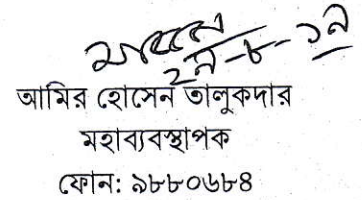 ২৯-৮-১৯
আমির হোসেন তালুকদার
মহাব্যবস্থাপক
ফোন: ৯৮৮০৬৮৪